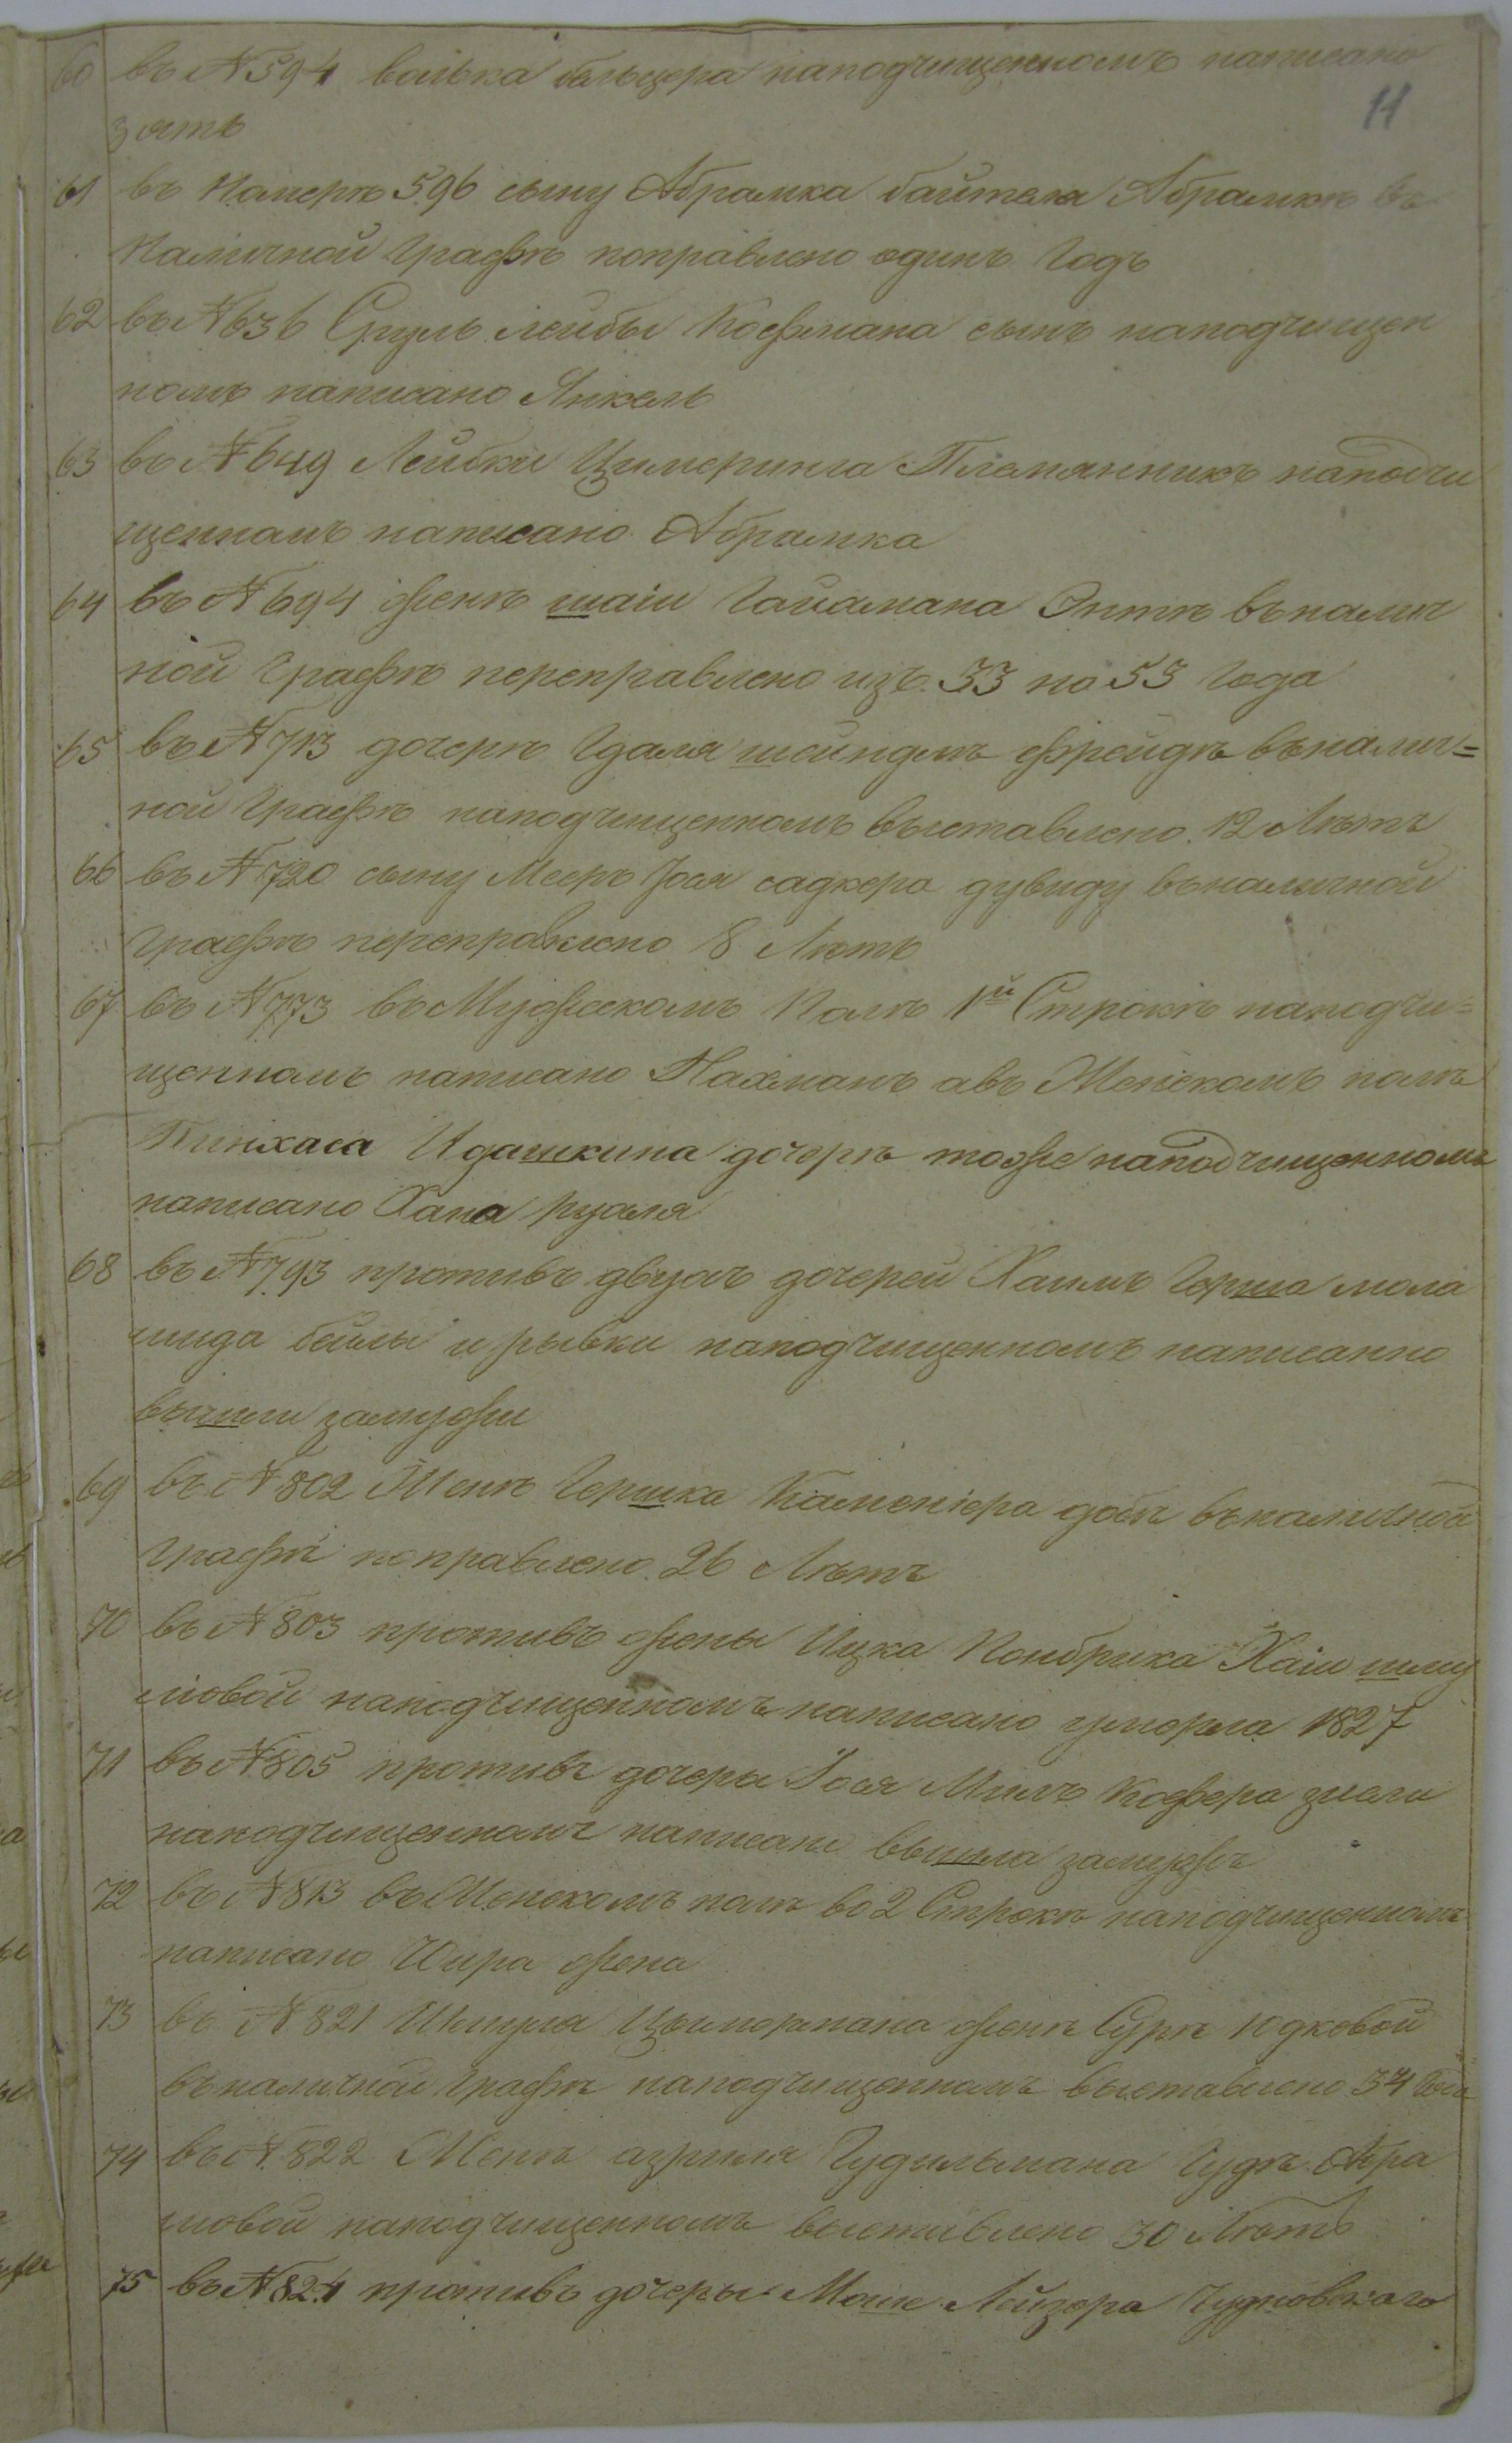 11
60 въ № 594 волька бельцера наподчищенномъ написано
зять
61 въ Номерѣ 596 сыну Абрамка байтеля Абрамкѣ въ
Наличной Графѣ поправлено одинъ Годъ
62 въ № 636 Сруль лейбы Кофмана сынъ наподчищен
номъ написано Янкель
63 въ № 649 Лейбки Цимеринга Племянникъ наподчи
щенномъ написано Абрамка
64 въ № 694 женѣ шаіи Гайсмана Энтѣ въ налич
ной Графѣ переправлено изъ 33 на 53 Года
65 въ № 713 дочерѣ Гдаля шейндель Фрейдѣ въ налич=
ной Графѣ наподчищенномъ выставлено 12 Лѣтъ
66 въ № 720 сыну Меерѣ Іося садкера дувиду въ наличной
Графѣ переправлено 8 Лѣтъ
67 въ № 773 въ Мужескомъ Полѣ 1й Строкѣ наподчи=
щенномъ написано Нахманъ авъ Женскомъ полѣ
Пинхаса Идашкина дочерѣ тоже наподчищенномъ
написано Хана рухля
68 въ № 793 противъ двухъ дочерей Хаимъ Герша мола
мида бейлы и рывки наподчищенномъ написанно
вышли замужи
69 въ № 802 Женѣ Гершка Каменіера добѣ въ наличной
Графѣ поправлено 26 Лѣтъ
70 въ № 803 противъ жены Ицка Хаіи шму
ловой наподчищенномъ написано умерла 1827
71 въ № 805 противъ дочеры Іося Милъ Кофера
наподчищенномъ написано вышла замужъ
72 въ № 813 въ Женскомъ полѣ во 2 Строкѣ наподчищенномъ
написано жена
73 въ № 821 Шмуля Цымермана женѣ Сурѣ Юдковой
въ наличной Графѣ наподчищенномъ выставлено 34 Года
74 въ № 822 Женѣ азриля Гудильмана Гудѣ Абра
мовой наподчищенномъ выставлено 30 Лѣтъ
75 въ № 824 противъ дочеры Мошѣ Лейзера Чудновскаго